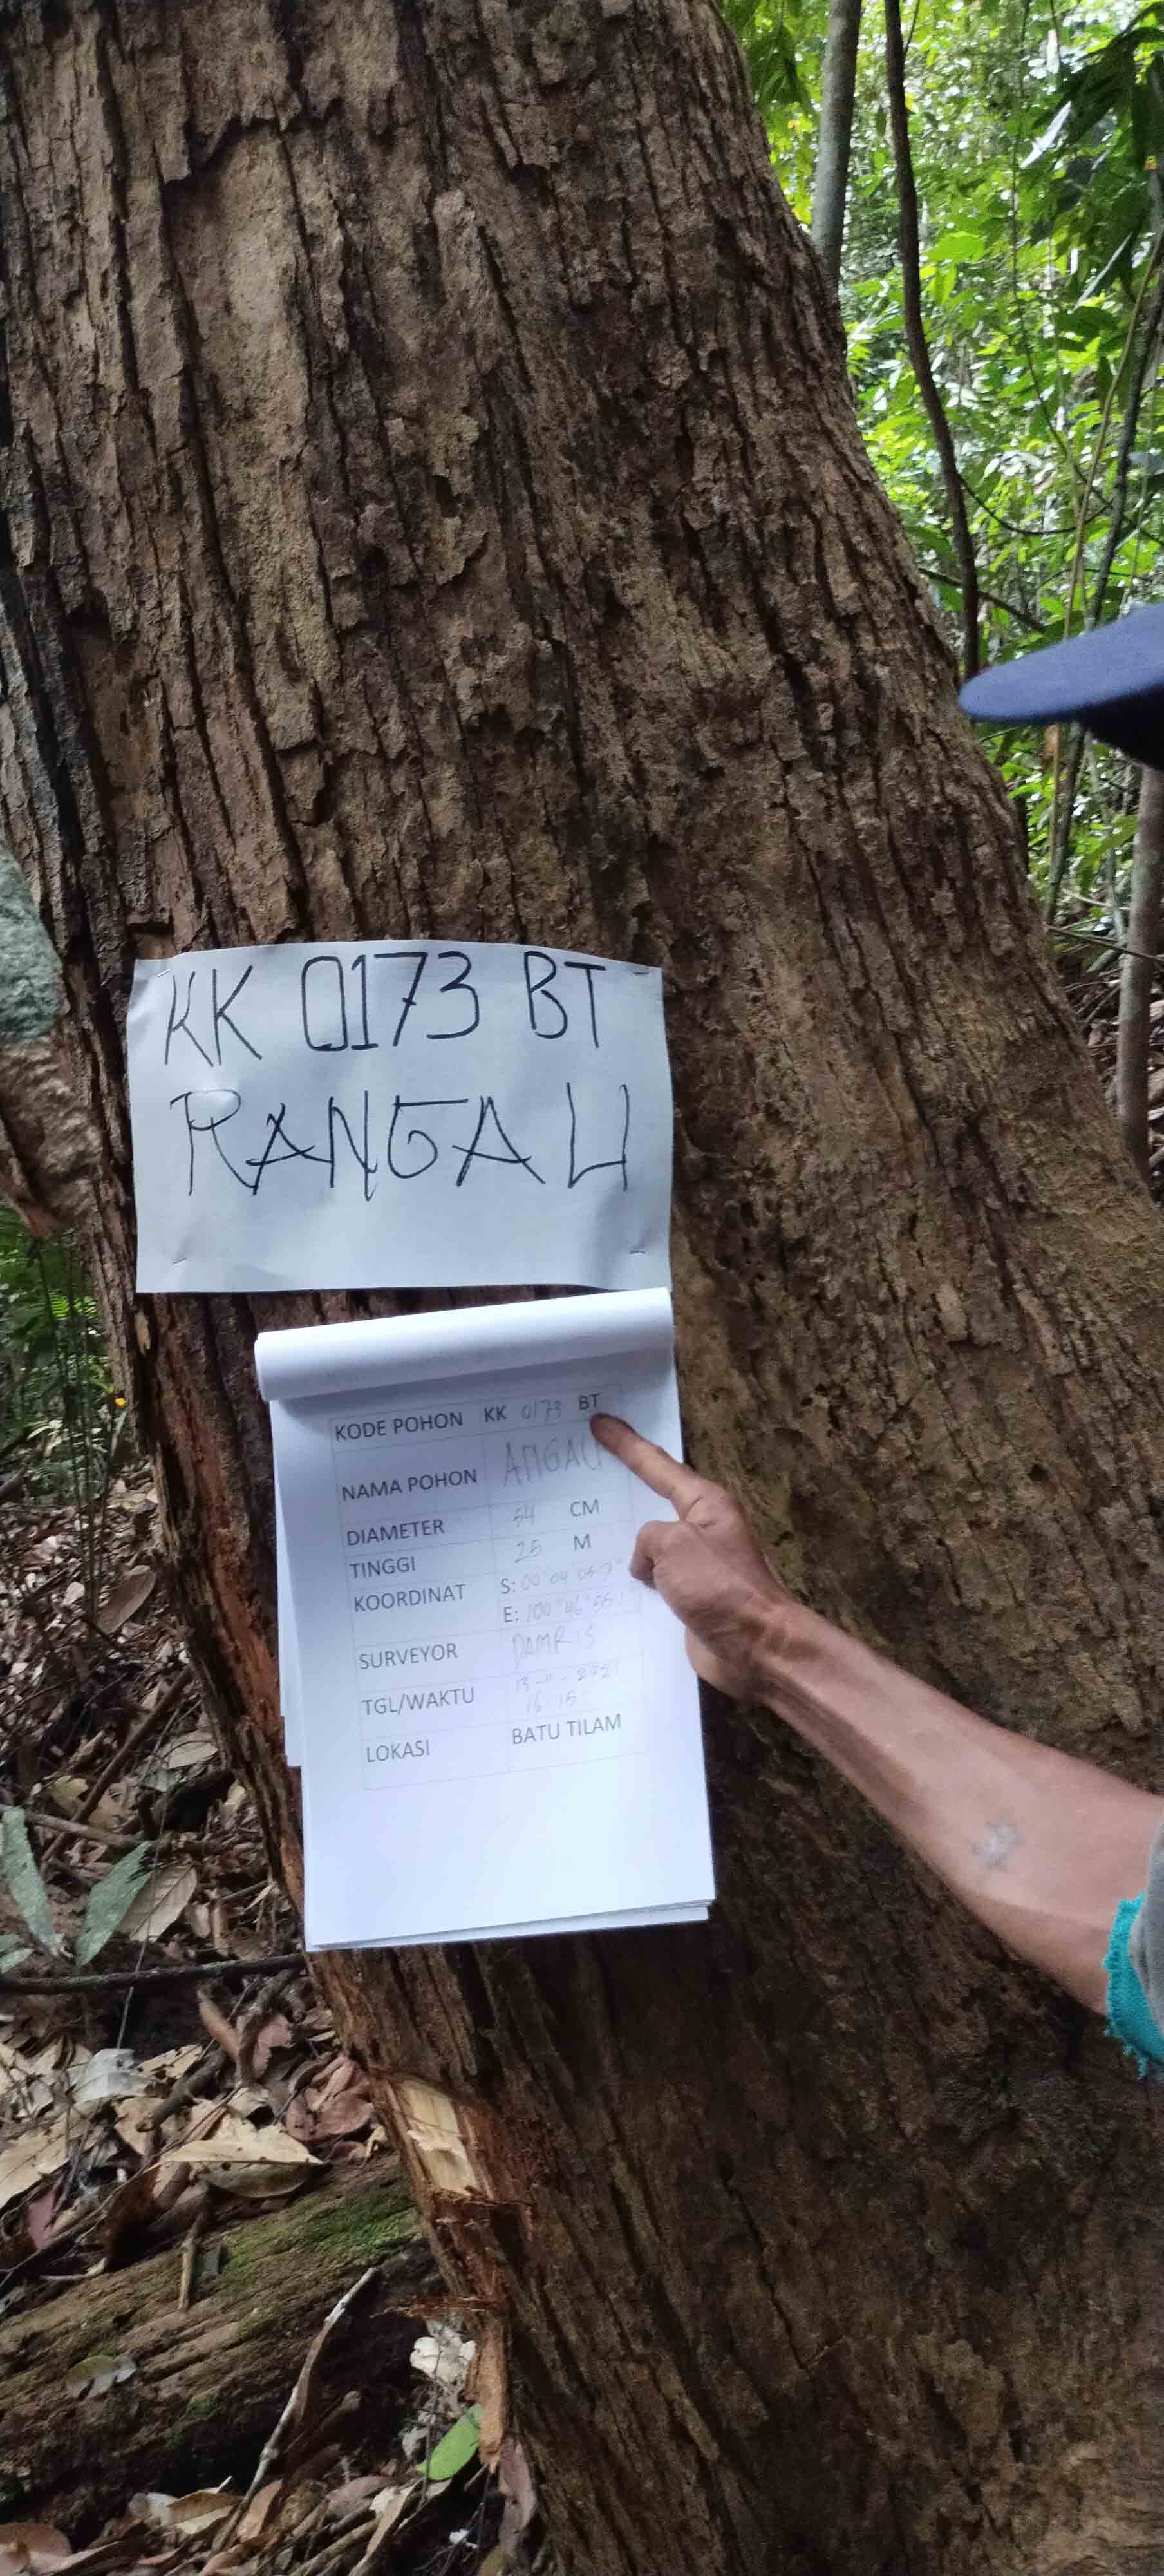 KK 0173 BT
RANGAU
KODE POHON KK 0173 BT
NAMA POHON ANGAU
DIAMETER 54 CM
TINGGI 25 M
KOORDINAT S:
E:
SURVEYOR DAMRIS
TGL/WAKTU 2021
16 15
LOKASI BATU TILAM